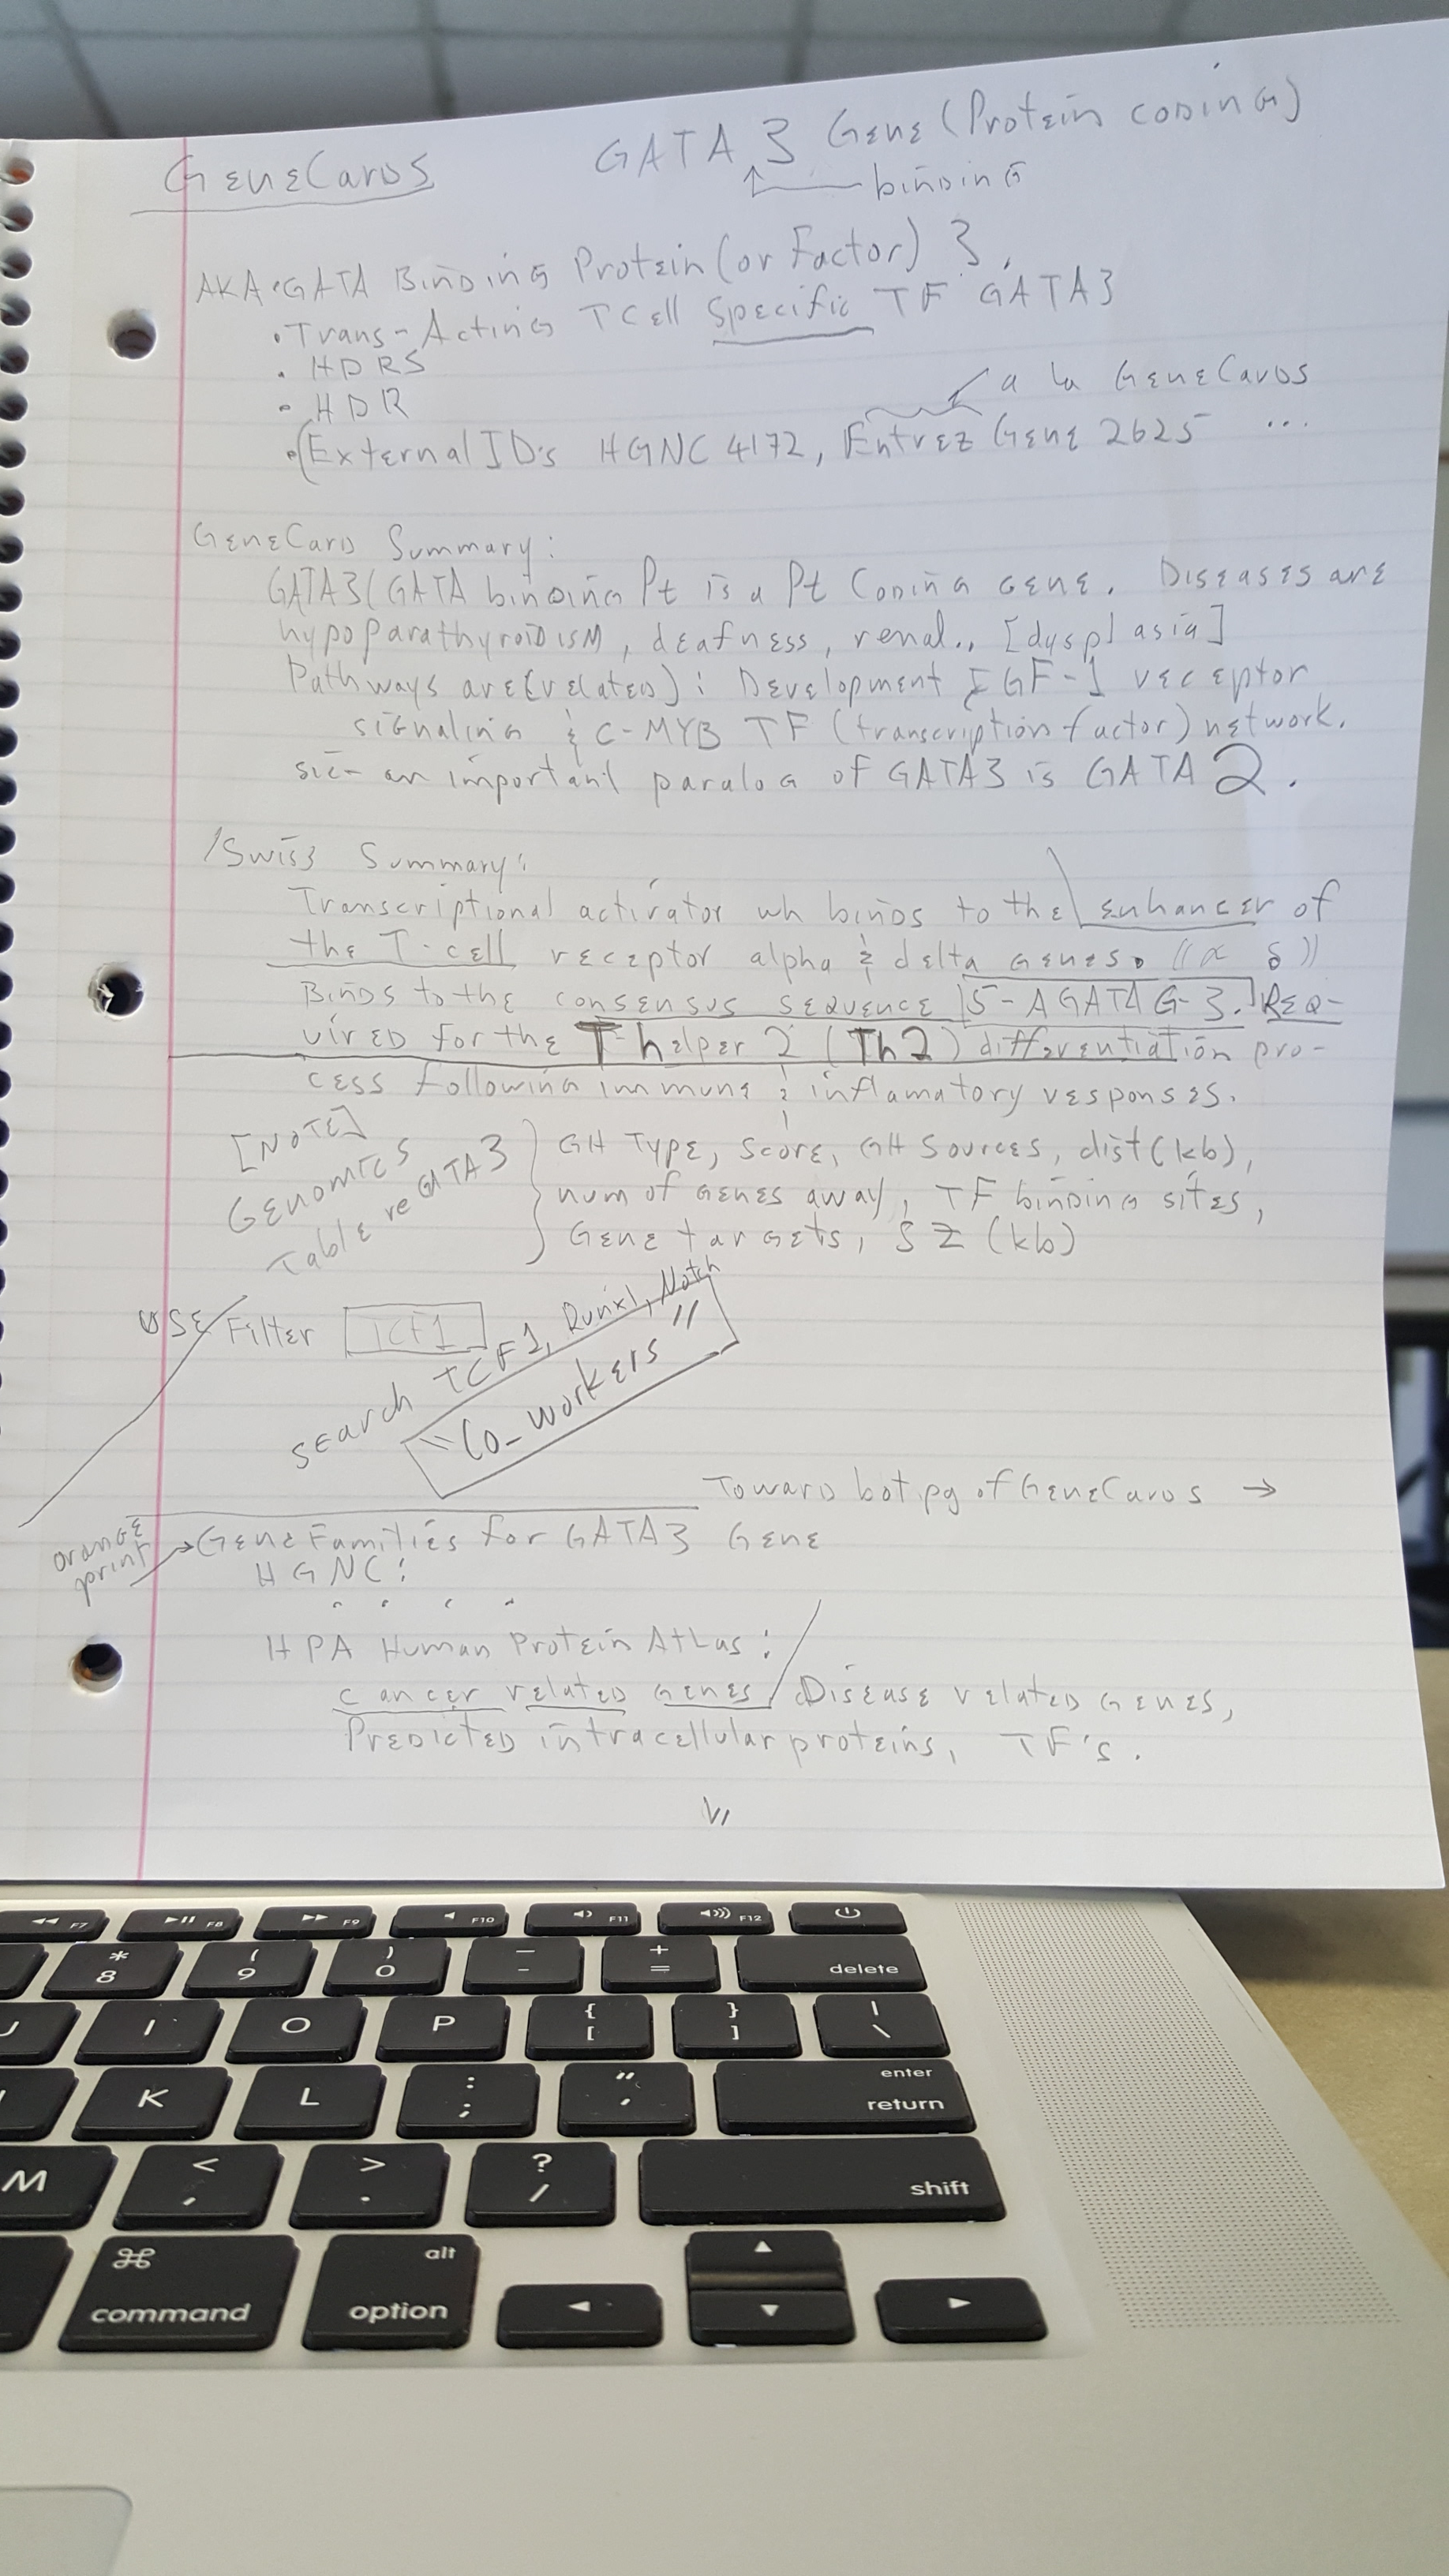 GeneCards GATA 3 Gene (Protein coding)
binding
AKA • GATA Binding Protein (or Factor) 3,
• Trans-Acting T Cell Specific TF GATA3
• HDRS
• HDR
a la GeneCards
• (External ID's HGNC 4172, Entrez Gene 2625 ...
GeneCard Summary:
GATA3 (GATA binding Pt is a Pt Coding gene. Diseases are
hypoparathyroidism, deafness, renal., [dysplasia]
Pathways are (related): Development IGF-1 receptor
signaling & C-MYB TF (transcription factor) network.
sic- an important paralog of GATA3 is GATA 2.
/Swiss Summary:
Transcriptional activator wh binds to the enhancer of
the T-cell receptor alpha & delta genes. ((α δ))
Binds to the consensus sequence [5-AGATAG-3.] Req-
uired for the T-helper 2 (Th2) differentiation pro-
cess following immune & inflamatory responses.
[NOTE]
Genomics
Table re GATA3
GH Type, Score, GH Sources, dist (kb),
num of genes away, TF binding sites,
Gene targets, SZ (kb)
USE Filter TCF1
search TCF1, Runx1, Notch
"Co-workers"
Toward bot pg of GeneCards →
orange
print
→ Gene Families for GATA3 Gene
HGNC:
. . . .
HPA Human Protein Atlas:
cancer related genes / Disease related genes,
Predicted intracellular proteins, TF's.
VI
F7 F8 F9 F10 F11 F12
* 8 ( 9 ) 0 _ - + = delete
J I O P { [ } ] | \
K L : ; " ' enter return
M < , > . ? / shift
⌘ command alt option